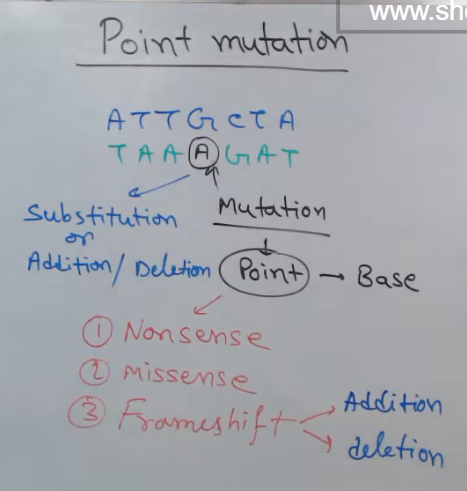 www.sho
Point mutation
ATTGCTA
TAAAGAT
Substitution
or
Addition/Deletion
Mutation
Point → Base
① Nonsense
② missense
③ Frameshift
Addition
deletion